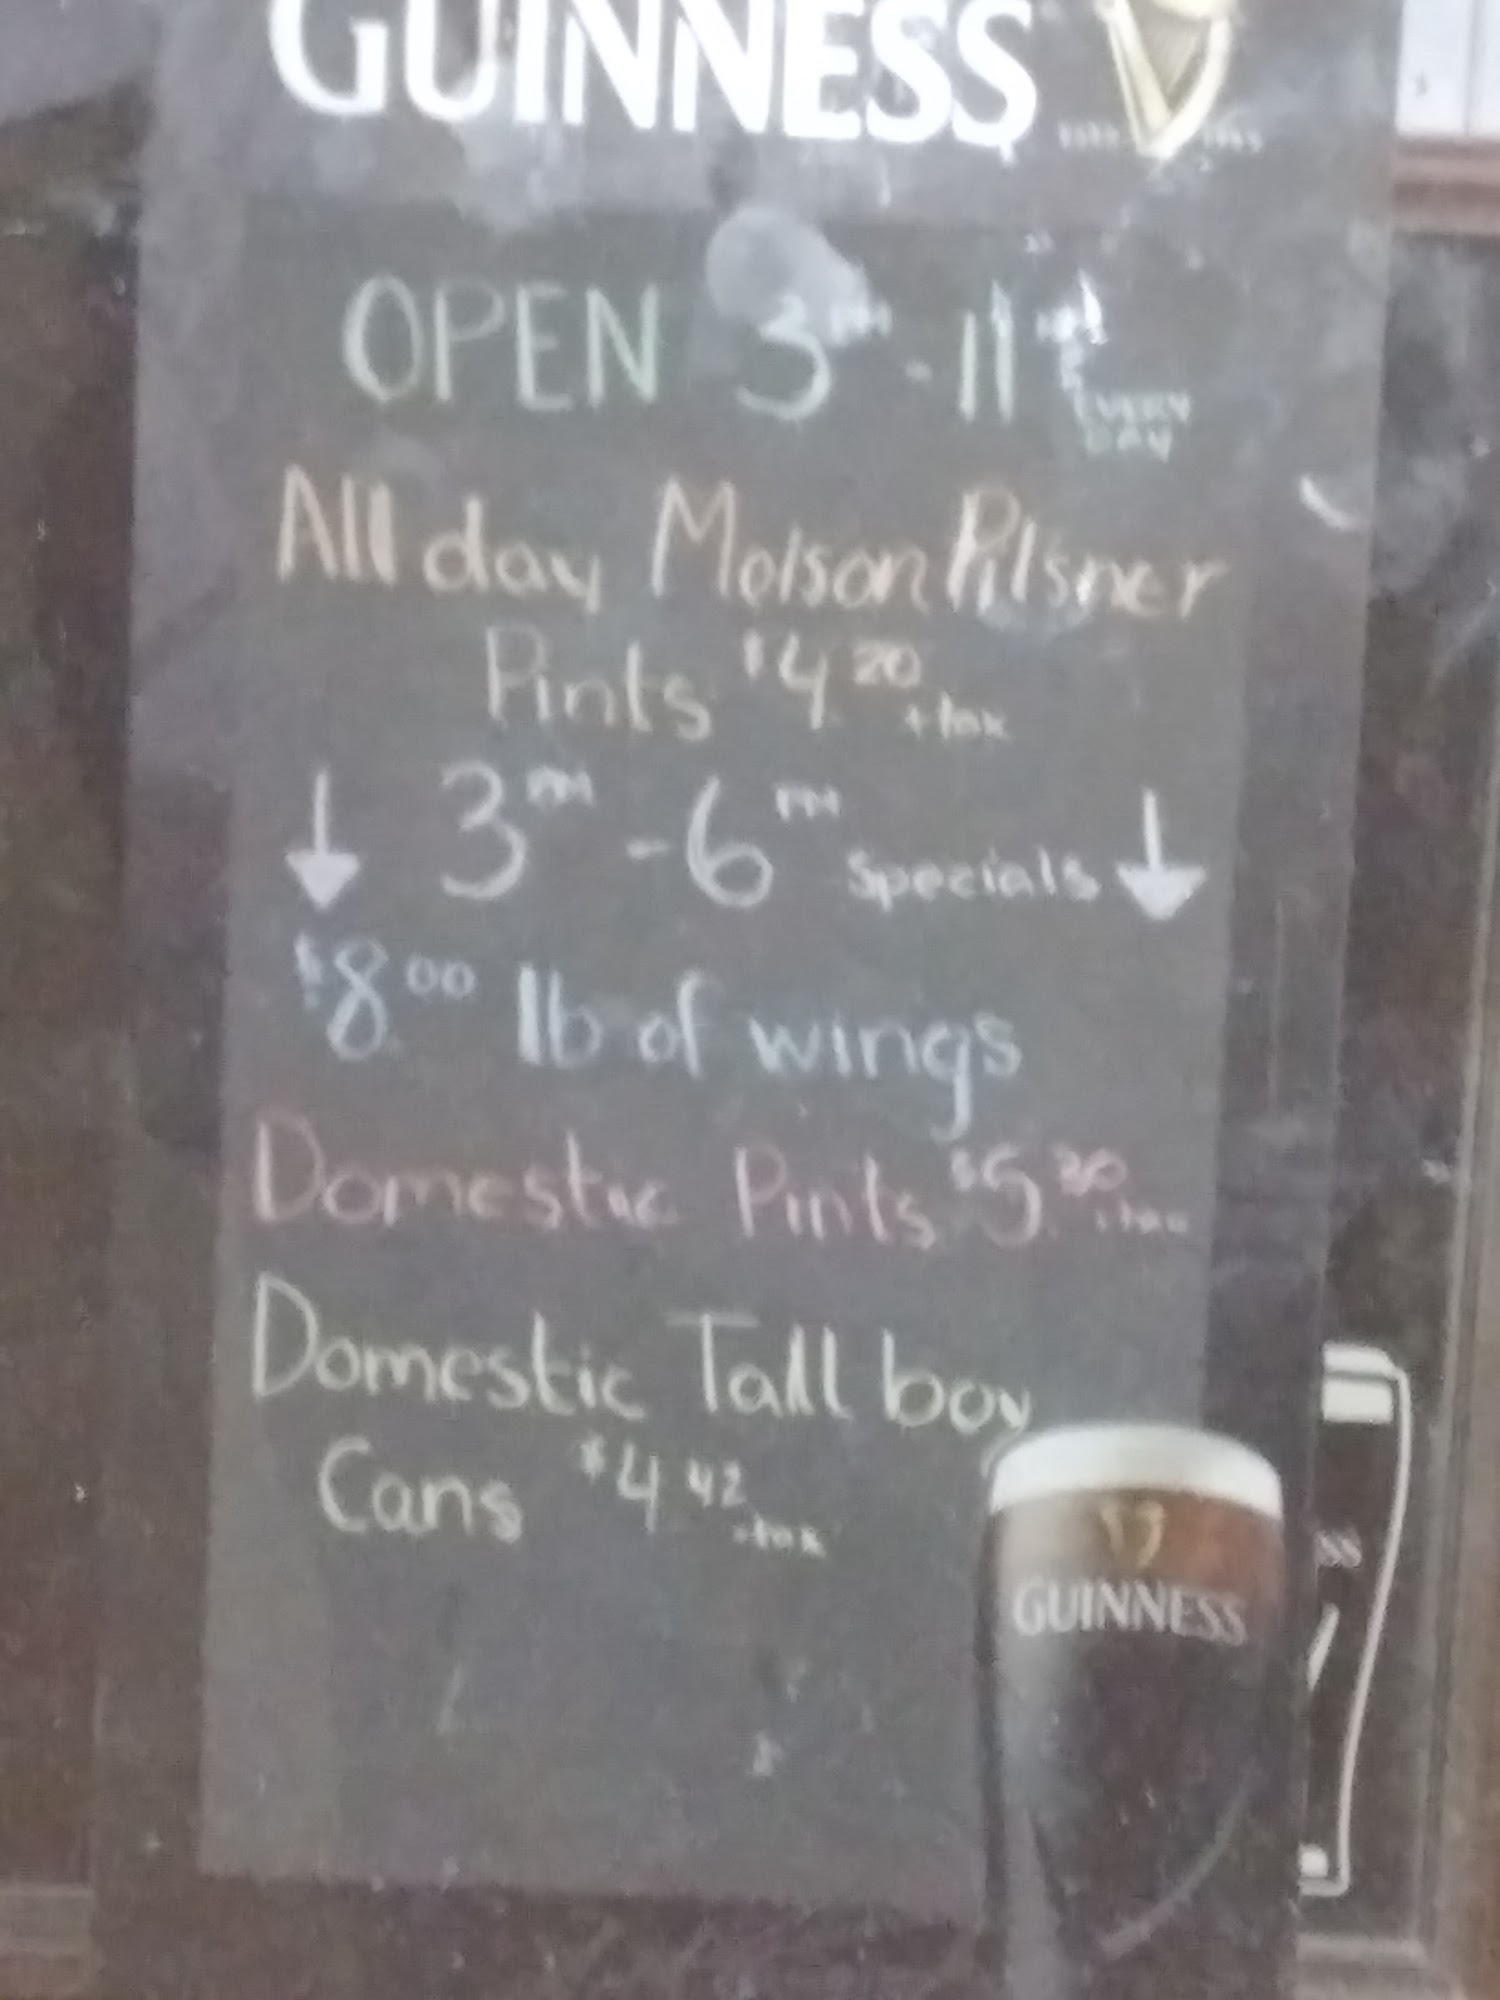 GUINNESS
OPEN 3PM - 11PM
EVERY
DAY
All day Molson Pilsner
Pints $4.20 +tax
3PM - 6PM Specials
$8.00 lb of wings
Domestic Pints $5.30 +tax
Domestic Tall boy
Cans $4.42 +tax
GUINNESS